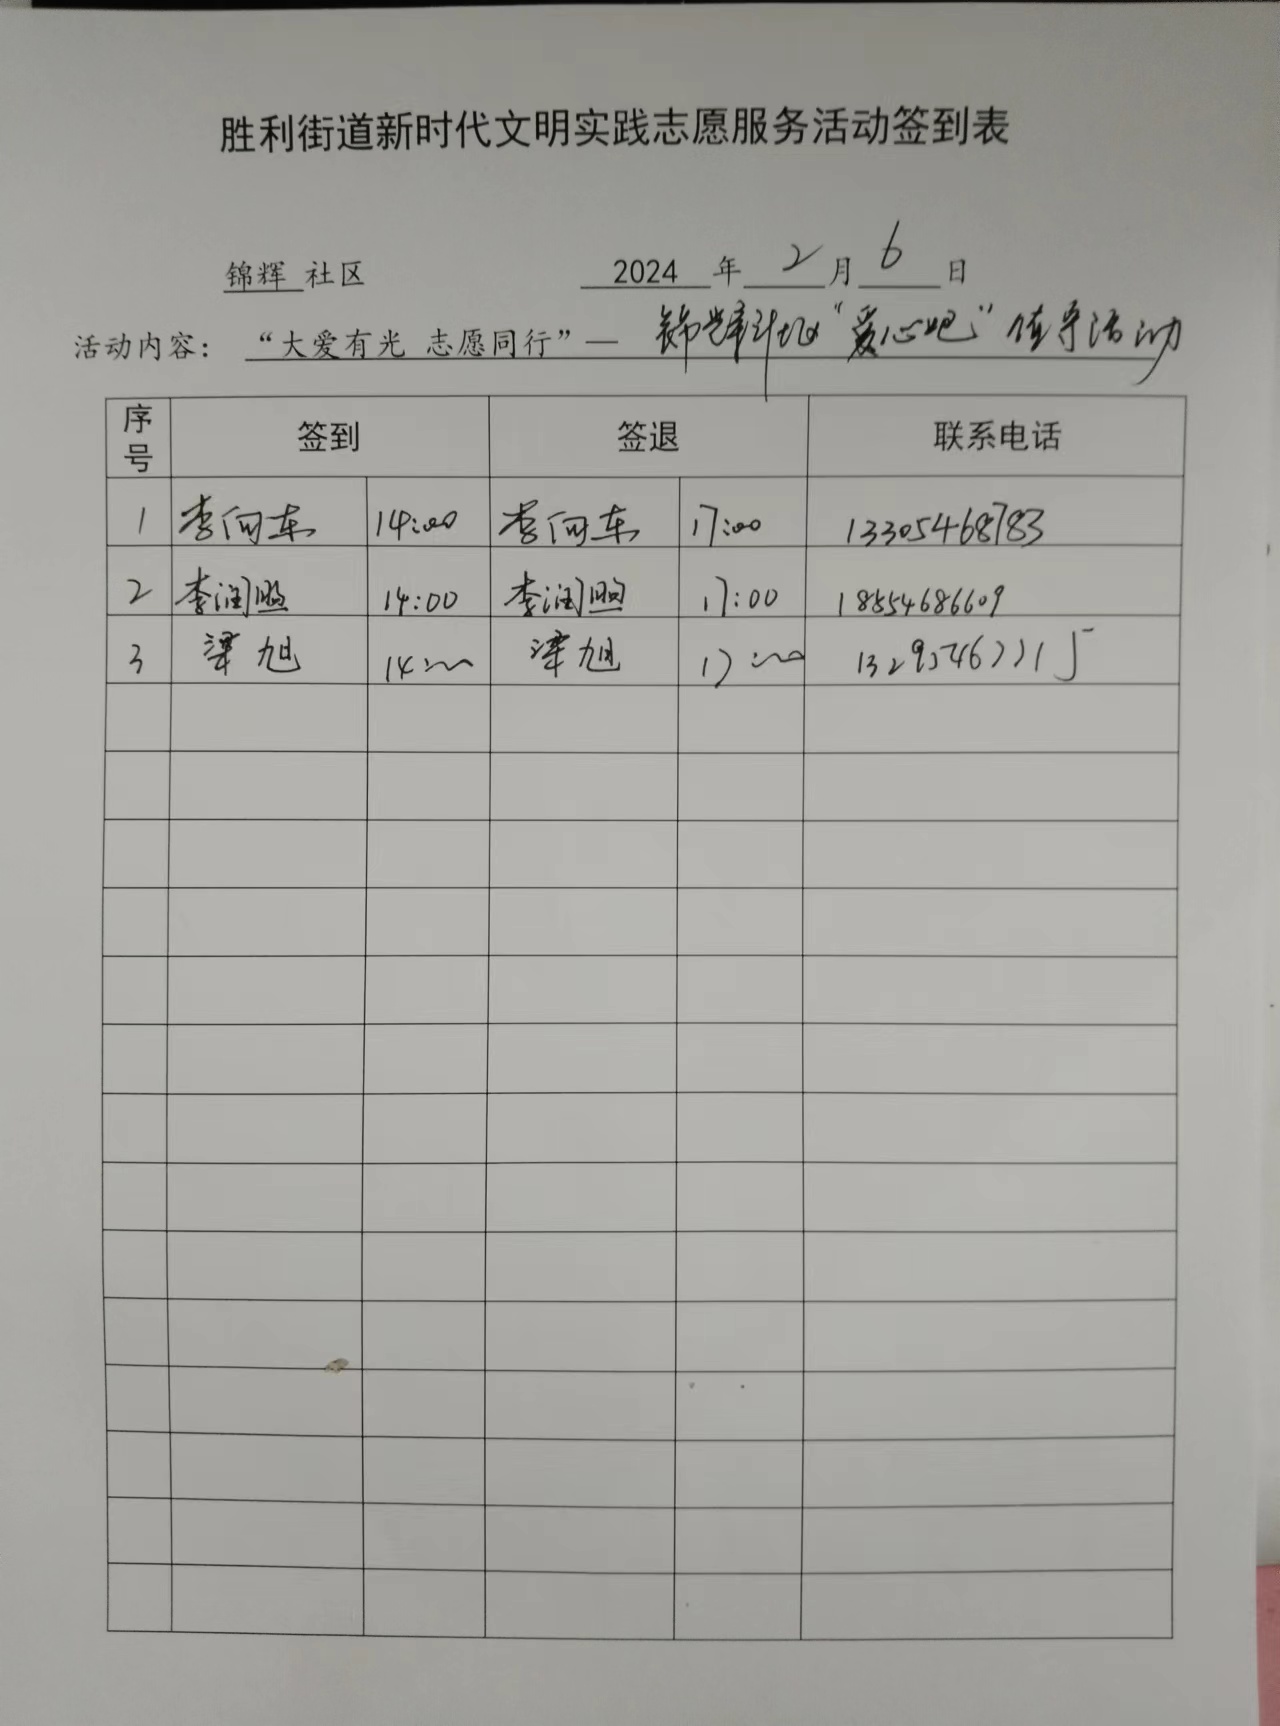 胜利街道新时代文明实践志愿服务活动签到表
锦辉 社区 2024 年 2 月 6 日
活动内容： “大爱有光 志愿同行”— 锦辉社区“爱心吧”值守活动
序号 签到 签退 联系电话
1 李向东 14:00 李向东 17:00 13305468783
2 李润照 14:00 李润照 17:00 18554686609
3 梁旭 14:00 梁旭 17:00